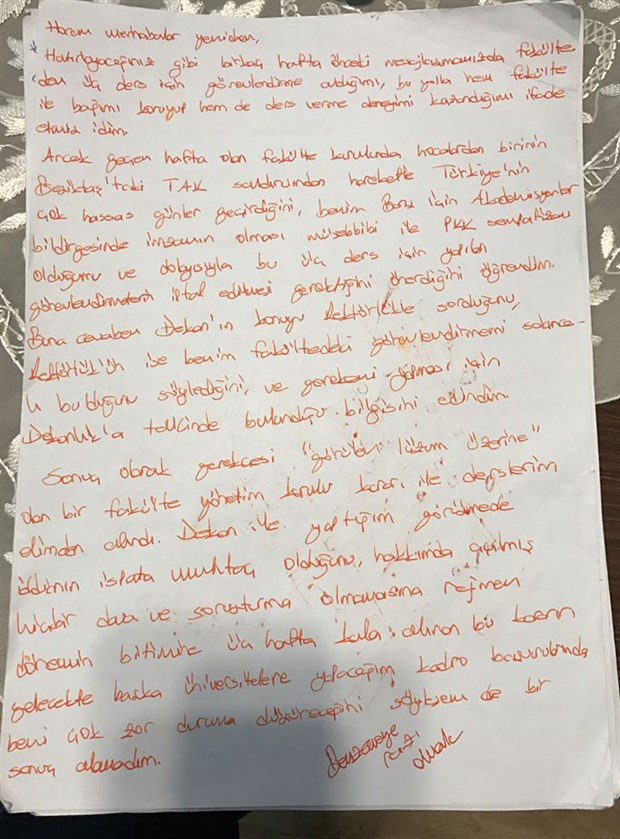 Hocam merhabalar yeniden,
Hatırlayacağınız gibi birkaç hafta önceki mesajlaşmamızda fakülte
den üç ders için görevlendirme aldığımı, bu yolla hem fakülte
ile bağımı koruyup hem de ders verme deneyimi kazandığımı ifade
etmiş idim.
Ancak geçen hafta olan fakülte kurulunda hocalardan birinin
Beşiktaş'taki TAK saldırısından hareketle Türkiye'nin
çok hassas günler geçirdiğini, benim Barış için Akademisyenler
bildirgesinde imzamın olması müsebbibi ile PKK sempatizanı
olduğumu ve dolayısıyla bu üç ders için yapılan
görevlendirmelerin iptal edilmesi gerektiğini önerdiğini öğrendim.
Buna cevaben Dekan'ın konuyu Rektörlükle sorduğunu,
Rektörlük'ün ise benim fakültedeki görevlendirmemi sakınca-
lı bulduğunu söylediğini, ve gerekeni yapması için
Dekanlık'a telkinde bulunduğu bilgisini edindim.
Sonuç olarak gerekçesi "görülen lüzum üzerine"
olan bir fakülte yönetim kurulu kararı ile derslerim
elimden alındı. Dekan ile yaptığım görüşmede
iddianın ispata muhtaç olduğunu, hakkımda açılmış
hiçbir dava ve soruşturma olmamasına rağmen
dönemin bitimine üç hafta kala alınan bu kararın
gelecekte başka üniversitelere yapacağım kadro başvurularında
beni çok zor duruma düşüreceğini söylesem de bir
sonuç alamadım.
Benzemeye
razı
olmak